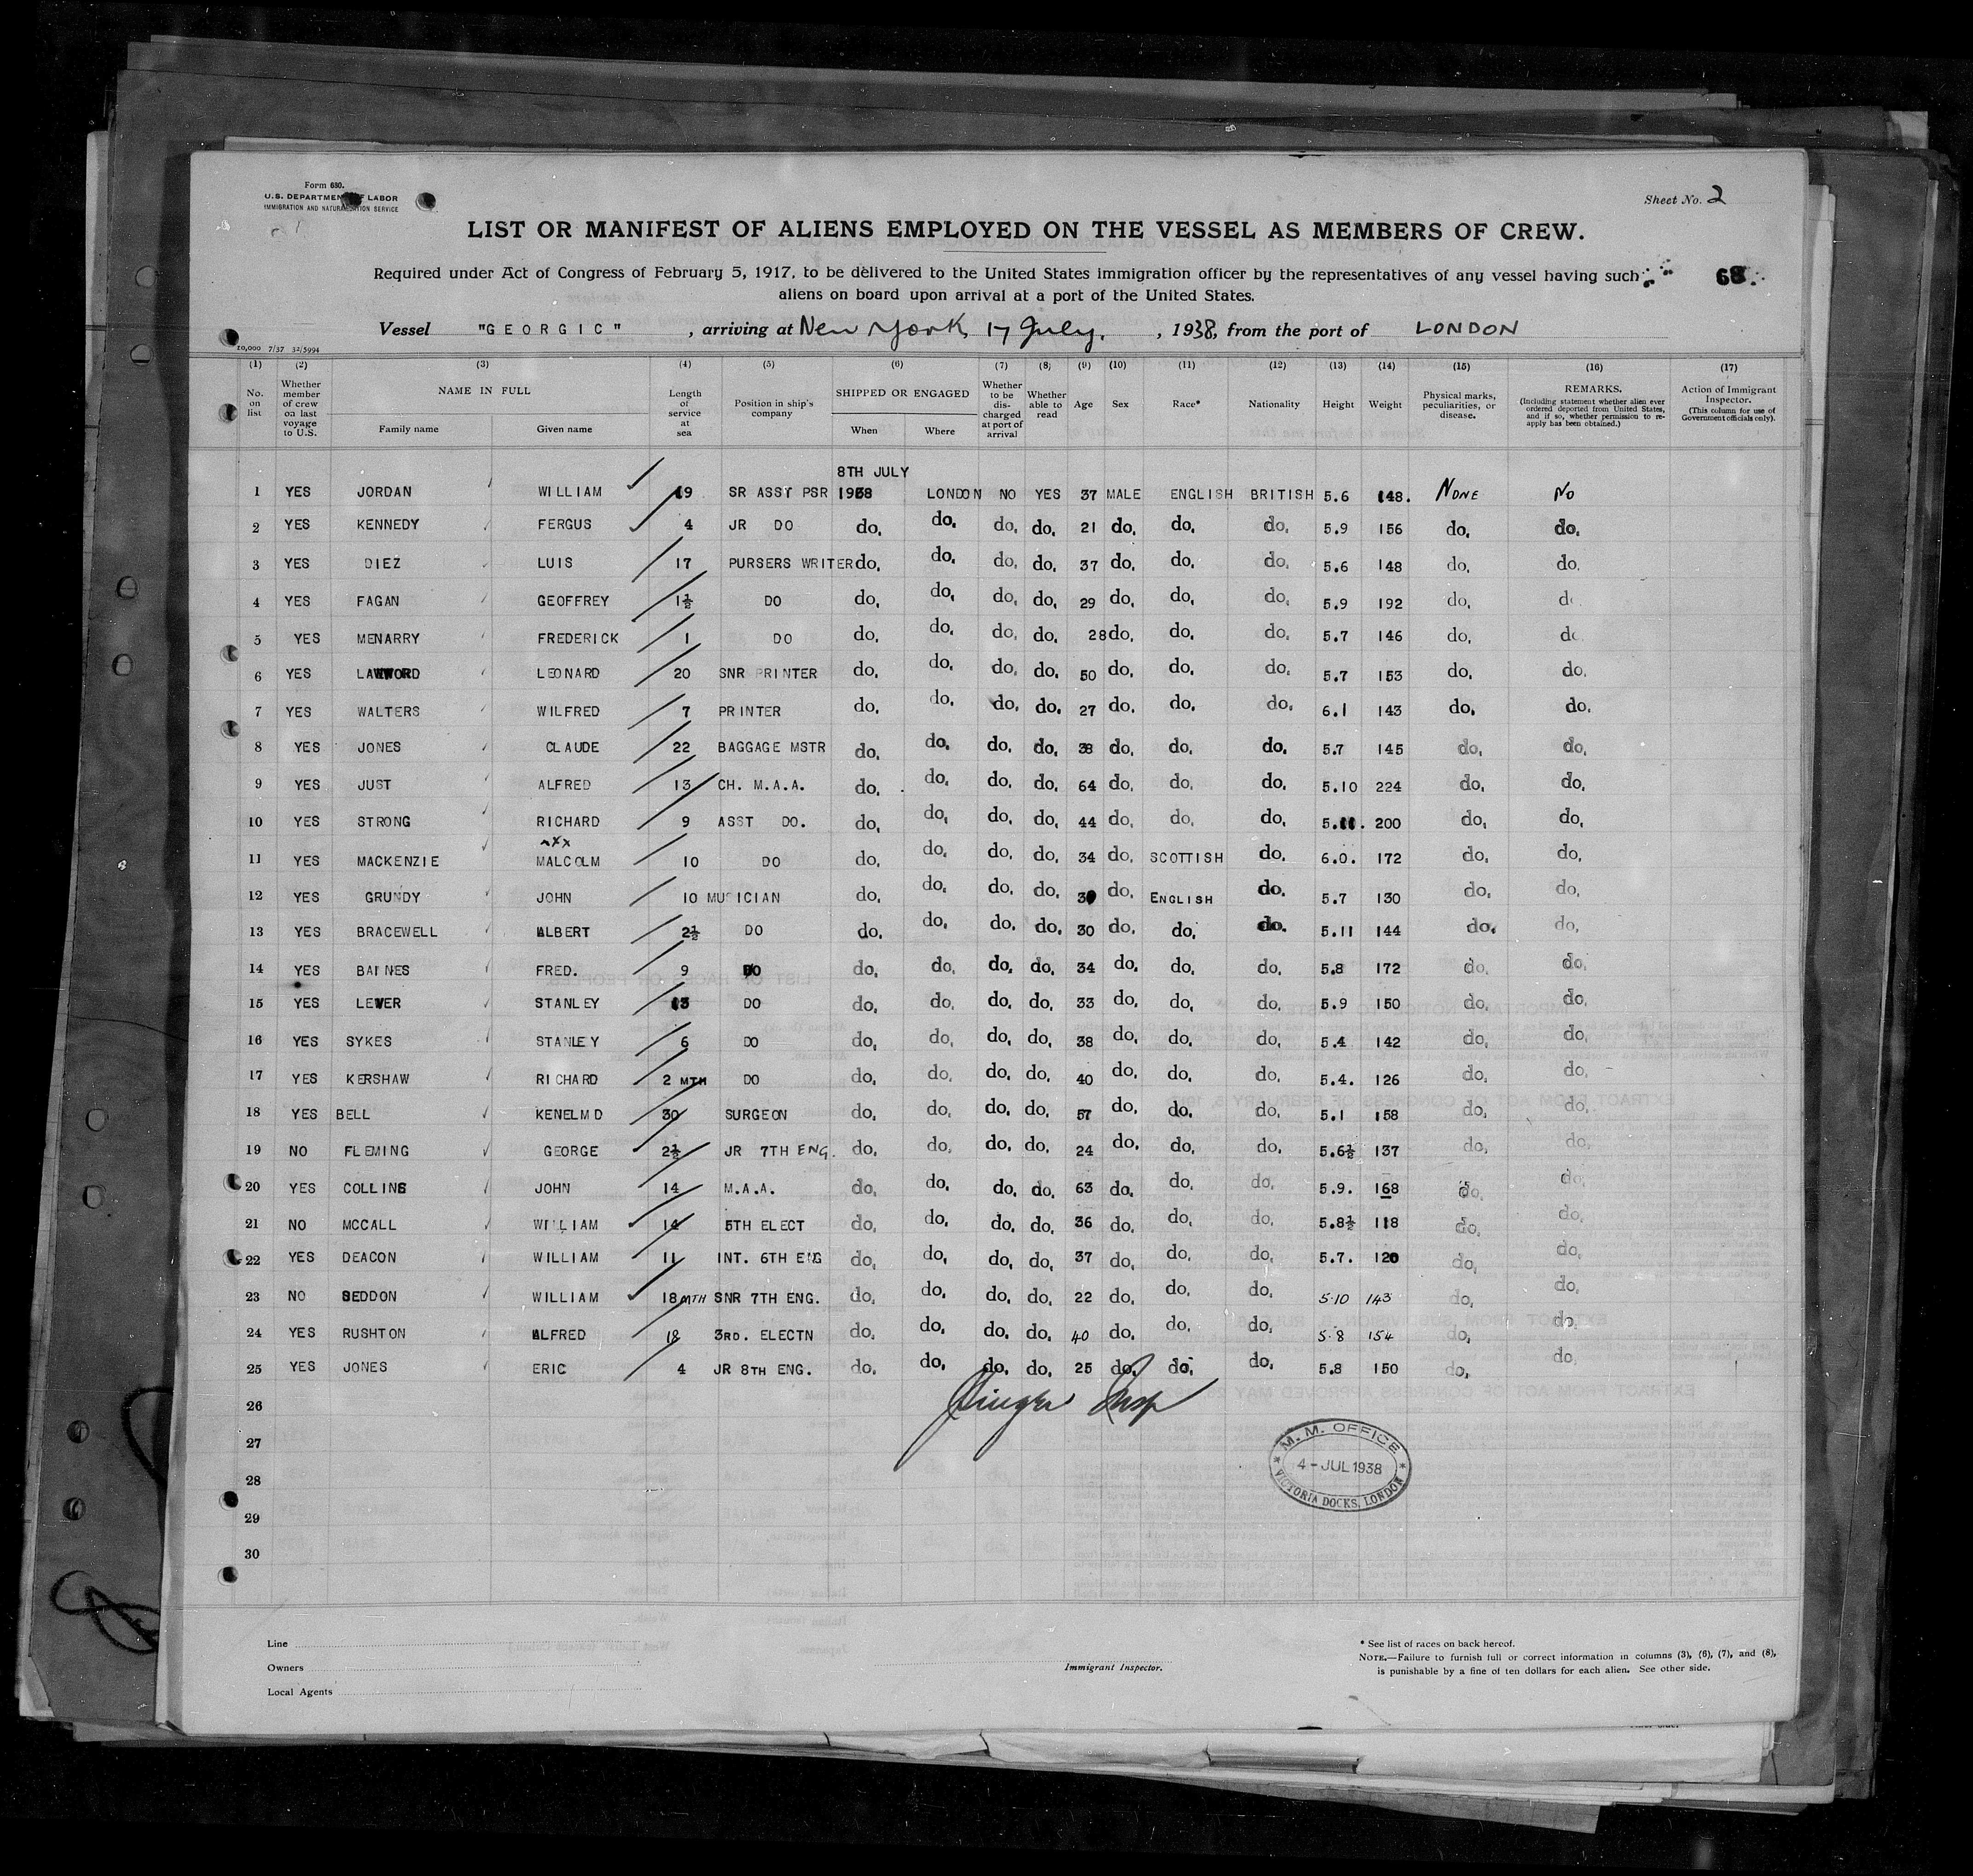 Form 680.
U.S. DEPARTMENT OF LABOR
IMMIGRATION AND NATURALIZATION SERVICE
Sheet No. 2
LIST OR MANIFEST OF ALIENS EMPLOYED ON THE VESSEL AS MEMBERS OF CREW.
Required under Act of Congress of February 5, 1917, to be delivered to the United States immigration officer by the representatives of any vessel having such
aliens on board upon arrival at a port of the United States.
68.
Vessel "GEORGIC", arriving at New York 17 July, 1938, from the port of LONDON
10,000 7/37 32/5994
(1) (2) (3) (4) (5) (6) (7) (8) (9) (10) (11) (12) (13) (14) (15) (16) (17)
No. on list
Whether member of crew on last voyage to U.S.
NAME IN FULL
Family name Given name
Length of service at sea
Position in ship's company
SHIPPED OR ENGAGED
When Where
Whether to be discharged at port of arrival
Whether able to read
Age
Sex
Race*
Nationality
Height
Weight
Physical marks, peculiarities, or disease.
REMARKS.
(Including statement whether alien ever ordered deported from United States, and if so, whether permission to re-apply has been obtained.)
Action of Immigrant Inspector.
(This column for use of Government officials only).
8TH JULY
1 YES JORDAN WILLIAM 19 SR ASST PSR 1938 LONDON NO YES 37 MALE ENGLISH BRITISH 5.6 148. NONE NO
2 YES KENNEDY FERGUS 4 JR DO do. do. do. do. 21 do. do. do. 5.9 156 do. do.
3 YES DIEZ LUIS 17 PURSERS WRITER do. do. do. do. 37 do. do. do. 5.6 148 do. do.
4 YES FAGAN GEOFFREY 1½ DO do. do. do. do. 29 do. do. do. 5.9 192 do. do.
5 YES MENARRY FREDERICK 1 DO do. do. do. do. 28 do. do. do. 5.7 146 do. do.
6 YES LEONARD 20 SNR PRINTER do. do. do. do. 50 do. do. do. 5.7 153 do. do.
7 YES WALTERS WILFRED 7 PRINTER do. do. do. do. 27 do. do. do. 6.1 143 do. do.
8 YES JONES CLAUDE 22 BAGGAGE MSTR do. do. do. do. 38 do. do. do. 5.7 145 do. do.
9 YES JUST ALFRED 13 CH. M.A.A. do. do. do. do. 64 do. do. do. 5.10 224 do. do.
10 YES STRONG RICHARD 9 ASST DO. do. do. do. do. 44 do. do. do. 5.11. 200 do. do.
11 YES MACKENZIE MALCOLM 10 DO do. do. do. do. 34 do. SCOTTISH do. 6.0. 172 do. do.
12 YES GRUNDY JOHN 10 MUSICIAN do. do. do. do. do. ENGLISH do. 5.7 130 do. do.
13 YES BRACEWELL ALBERT 2½ DO do. do. do. do. 30 do. do. do. 5.11 144 do. do.
14 YES BAINES FRED. 9 DO do. do. do. do. 34 do. do. do. 5.8 172 do. do.
15 YES LEVER STANLEY 13 DO do. do. do. do. 33 do. do. do. 5.9 150 do. do.
16 YES SYKES STANLEY 6 DO do. do. do. do. 38 do. do. do. 5.4 142 do. do.
17 YES KERSHAW RICHARD 2 MTH DO do. do. do. do. 40 do. do. do. 5.4. 126 do. do.
18 YES BELL KENELMD 30 SURGEON do. do. do. do. 57 do. do. do. 5.1 158 do. do.
19 NO FLEMING GEORGE 2½ JR 7TH ENG. do. do. do. do. 24 do. do. do. 5.6½ 137 do. do.
20 YES COLLINS JOHN 14 M.A.A. do. do. do. do. 63 do. do. do. 5.9. 168 do. do.
21 NO MCCALL WILLIAM 14 5TH ELECT do. do. do. do. 36 do. do. do. 5.8½ 118 do. do.
22 YES DEACON WILLIAM 11 INT. 6TH ENG do. do. do. do. 37 do. do. do. 5.7. 120 do. do.
23 NO SEDDON WILLIAM 18 MTH SNR 7TH ENG. do. do. do. do. 22 do. do. do. 5.10 143 do. do.
24 YES RUSHTON ALFRED 18 3RD. ELECTN do. do. do. do. 40 do. do. do. 5.8 154 do. do.
25 YES JONES ERIC 4 JR 8TH ENG. do. do. do. do. 25 do. do. do. 5.8 150 do. do.
26
27
28
29
30
M. M. OFFICE
4-JUL 1938
VICTORIA DOCKS, LONDON
Line
Owners
Local Agents
Immigrant Inspector.
* See list of races on back hereof.
NOTE.—Failure to furnish full or correct information in columns (3), (6), (7), and (8),
is punishable by a fine of ten dollars for each alien. See other side.